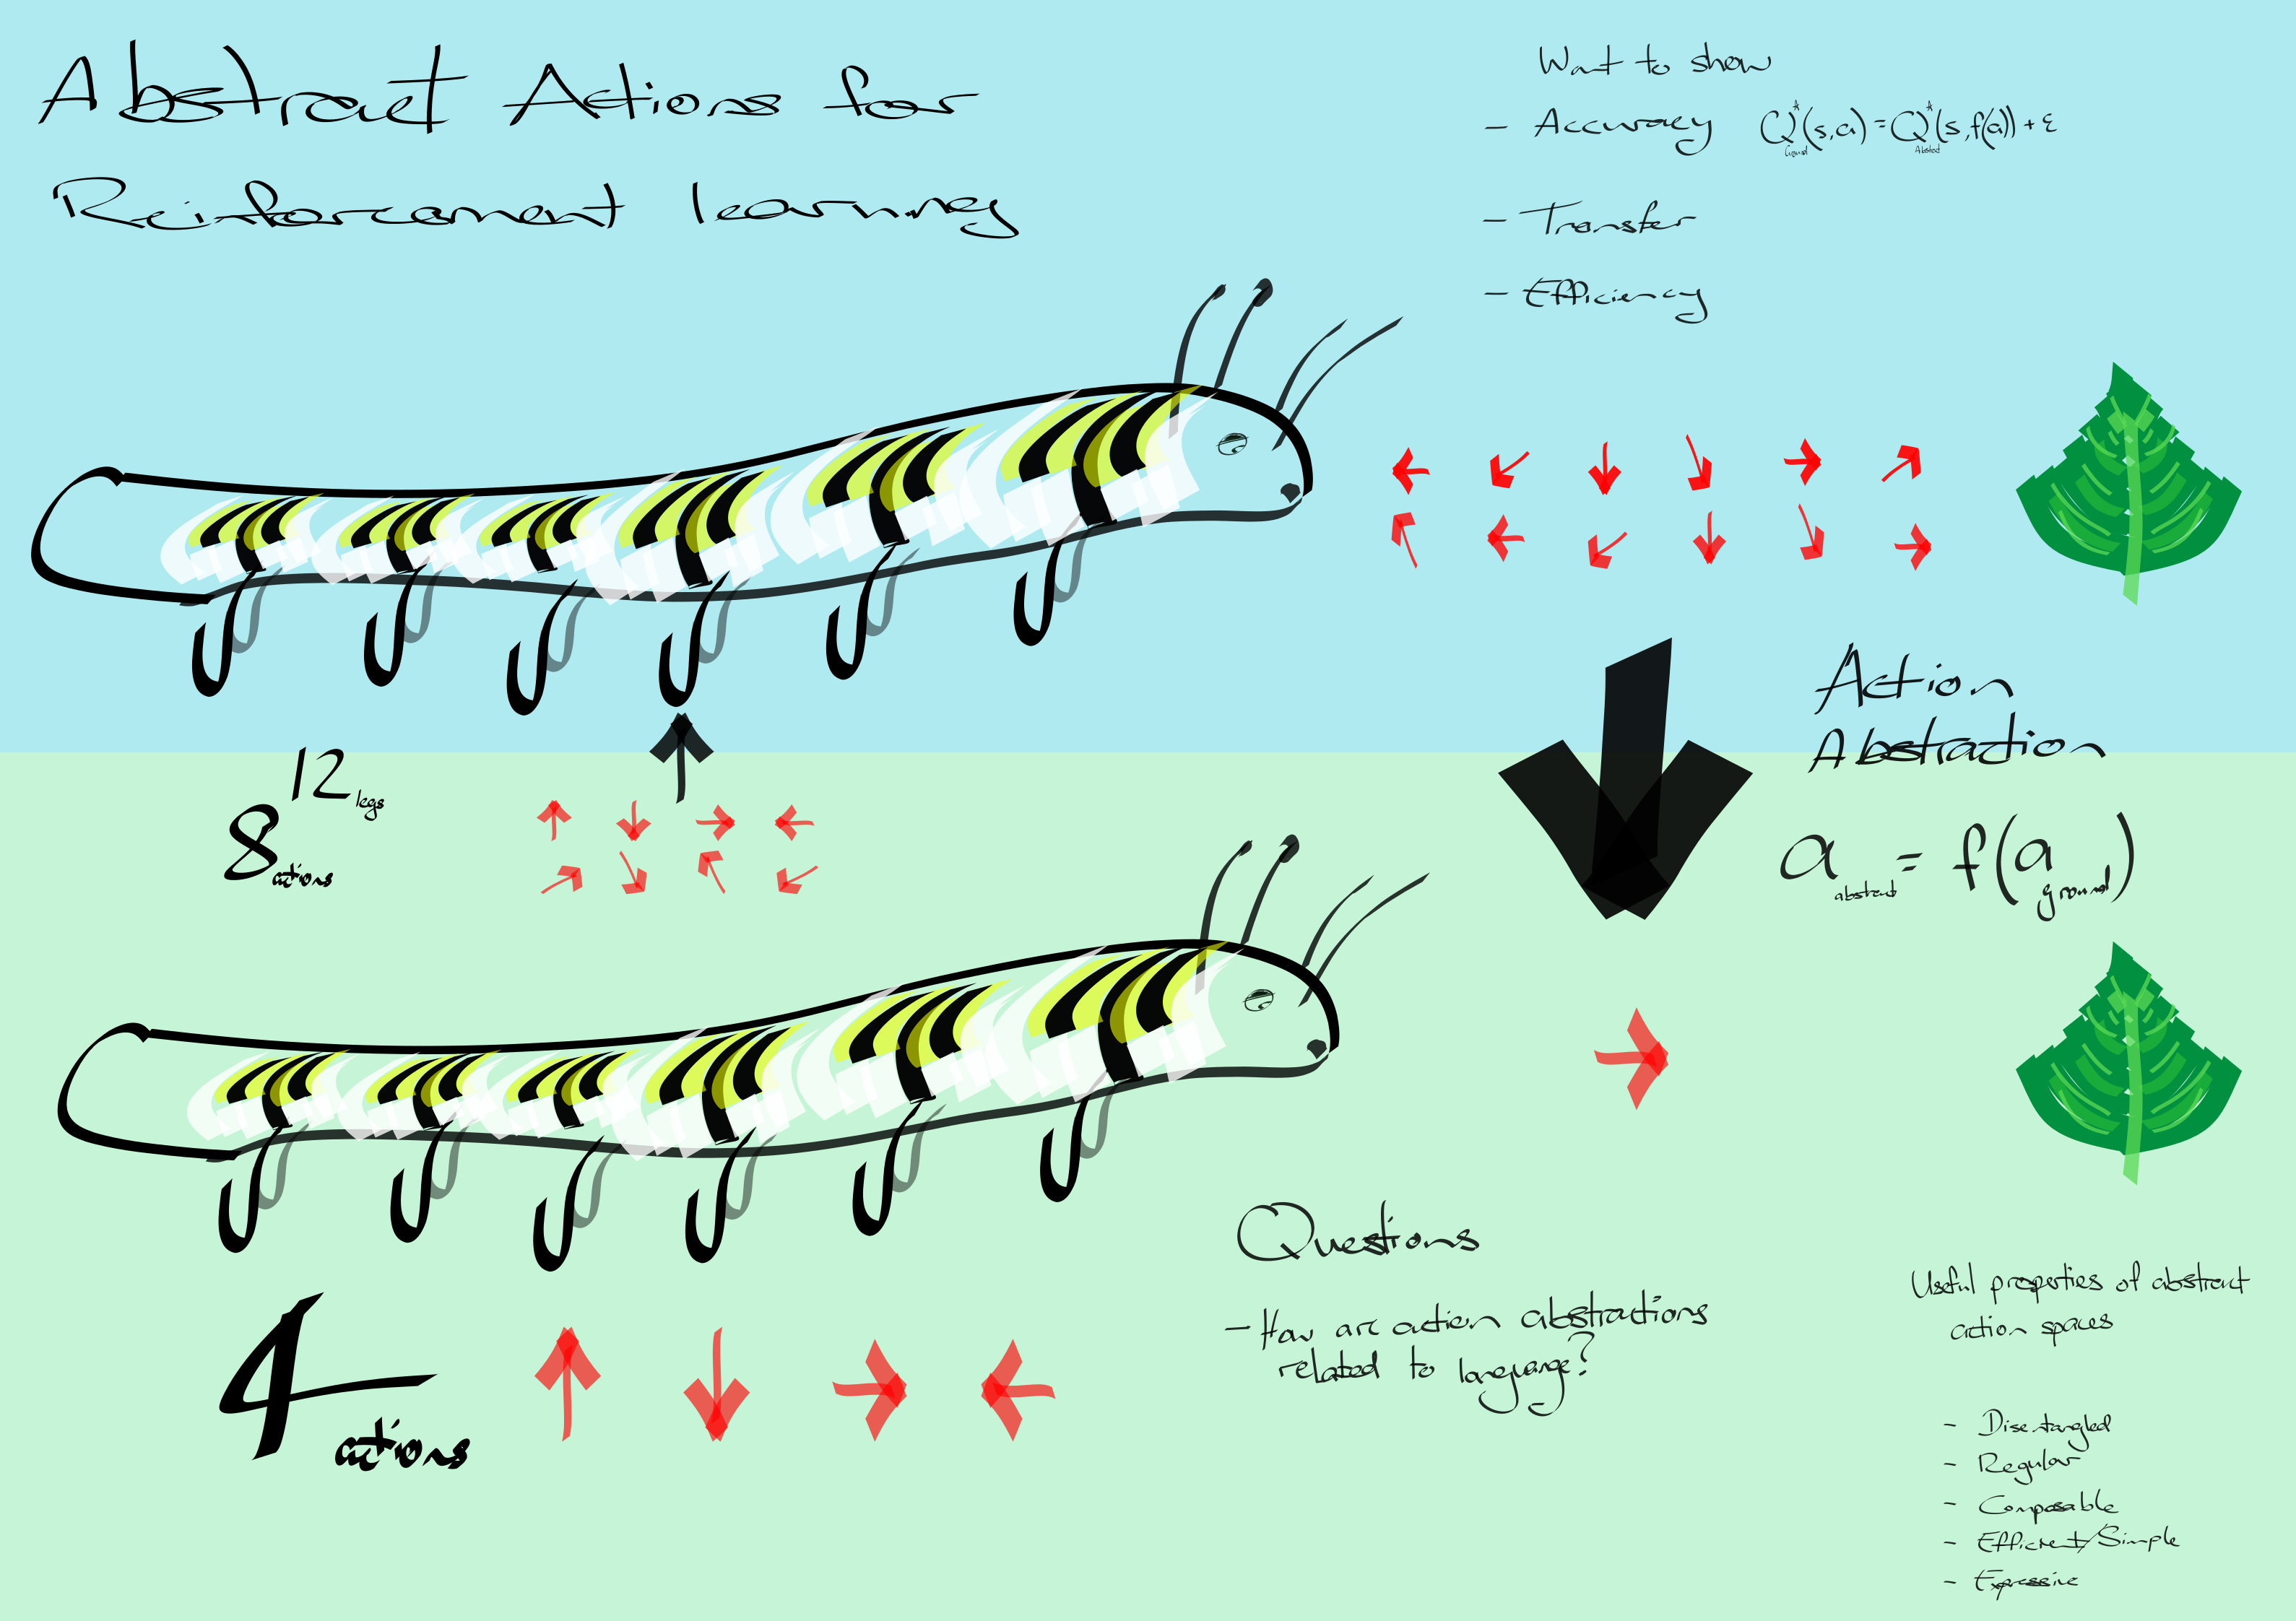 Abstract Actions for
Reinforcement learning
Want to show
- Accuracy Q*Ground(s,a) = Q*Abstract(s,f(a)) + ε
- Transfer
- Efficiency
Action
Abstraction
8actions^12legs
a abstract = f(a ground)
Questions
- How are action abstractions
related to language?
Useful properties of abstract
action spaces
- Disentangled
- Regular
- Composable
- Efficient/Simple
- Expressive
4 actions